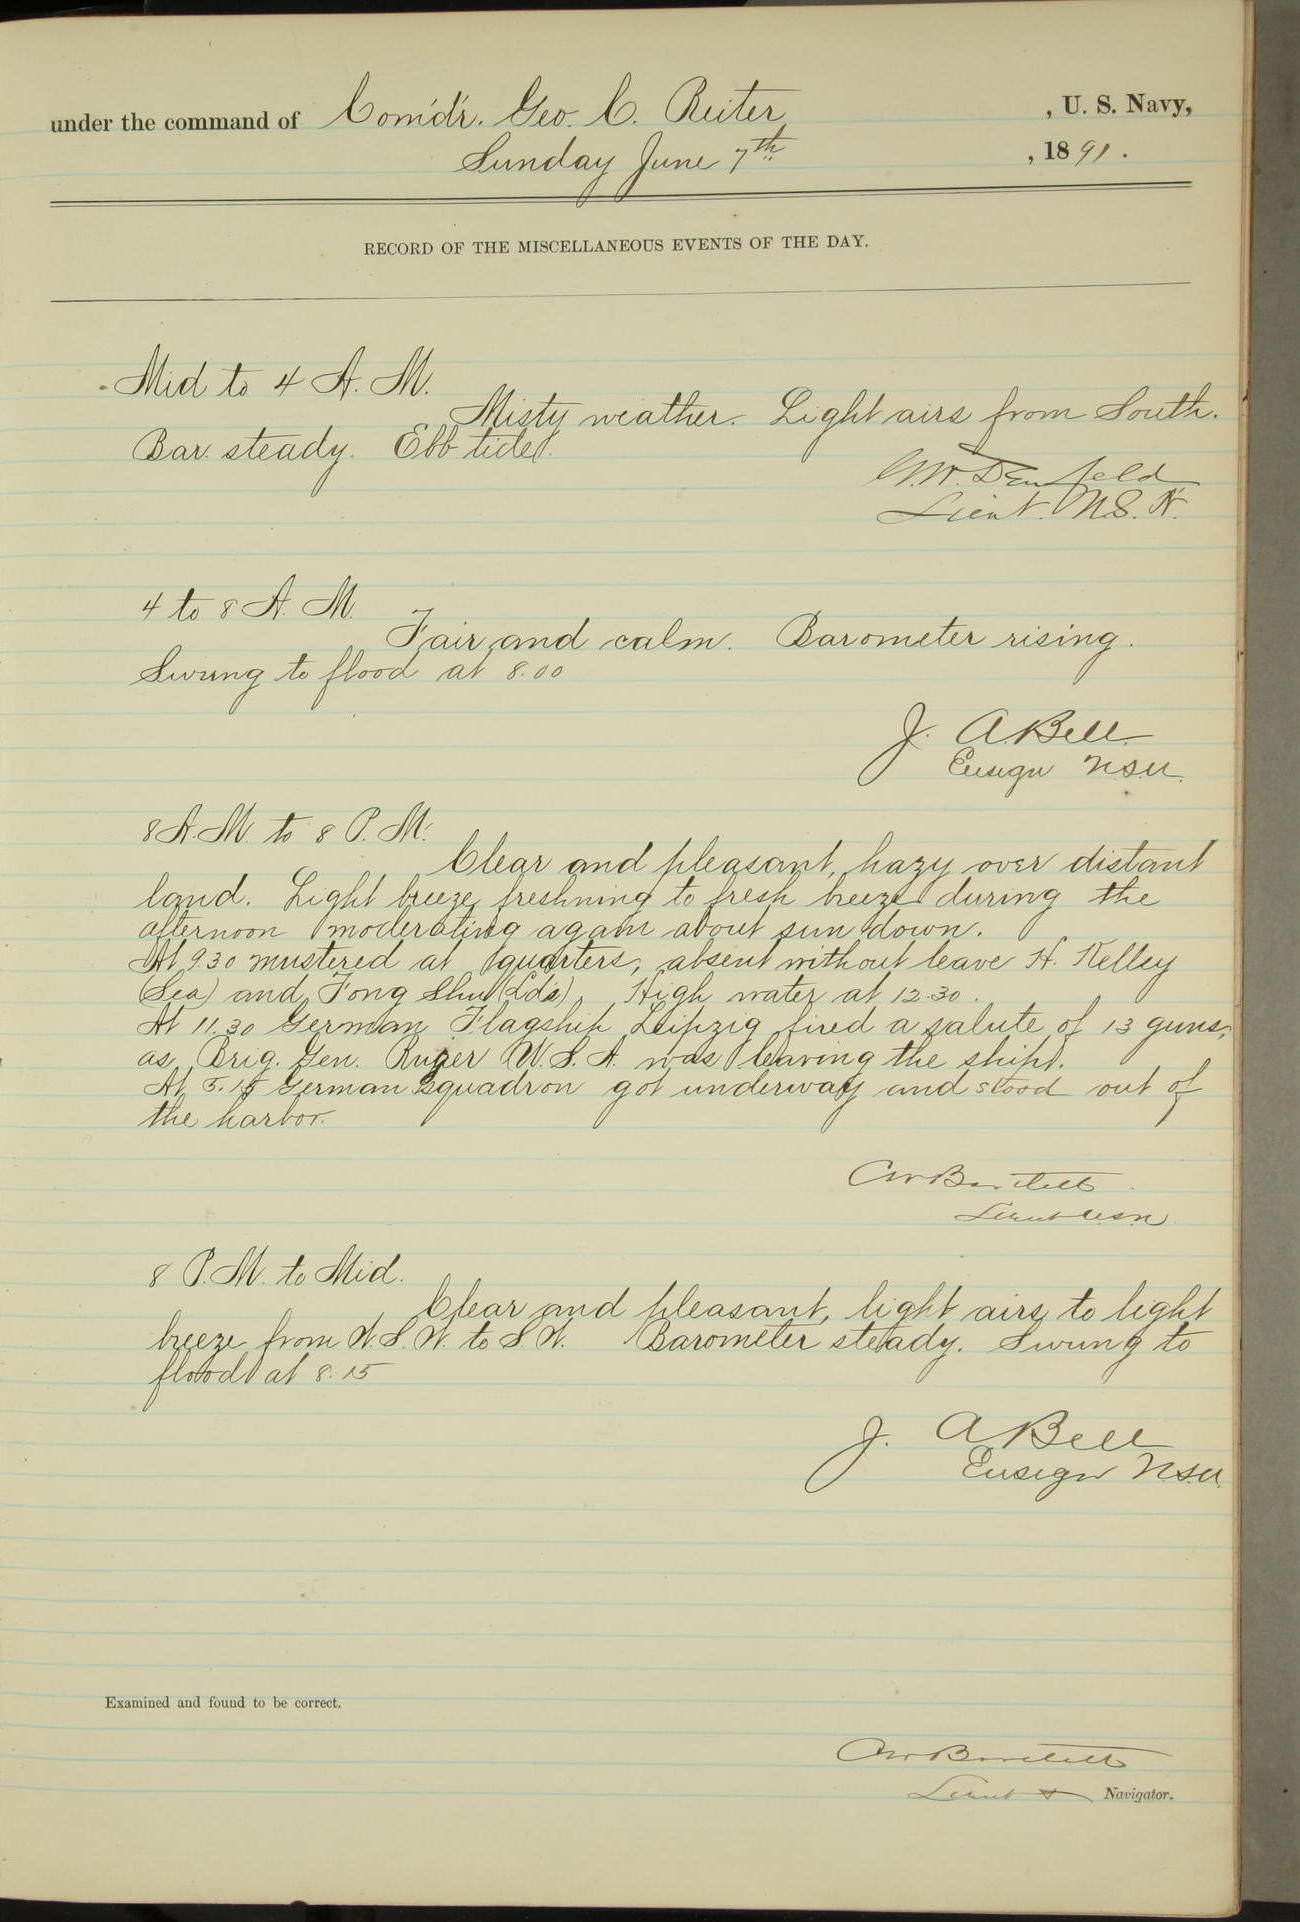 under the command of Com'd'r. Geo. C. Reiter, U. S. Navy,
Sunday June 7th, 1891.
RECORD OF THE MISCELLANEOUS EVENTS OF THE DAY.
Mid to 4 A. M.
Misty weather. Light airs from South.
Bar. steady. Ebb tide.
Denfeld
Lieut. U.S.N.
4 to 8 A. M.
Fair and calm. Barometer rising.
Swung to flood at 8.00
J. A. Bell
Ensign USN.
8 A.M. to 8 P. M.
Clear and pleasant, hazy over distant
land. Light breeze freshning to fresh breeze during the
afternoon moderating again about sun down.
At 9.30 mustered at quarters, absent without leave H. Kelley
(Sea) and Fong Shu (Lds), High water at 12.30.
At 11.30 German Flagship Leipzig fired a salute of 13 guns,
as Brig. Gen. Ruger U.S.A. was leaving the ship.
At 5.15 German squadron got underway and stood out of
the harbor.
CW Bartlett
Lieut USN
8 P.M. to Mid.
Clear and pleasant, light airs to light
breeze from W.S.W. to S.W. Barometer steady. Swung to
flood at 8.15
J. A Bell
Ensign USN.
Examined and found to be correct.
CW Bartlett
Lieut & Navigator.